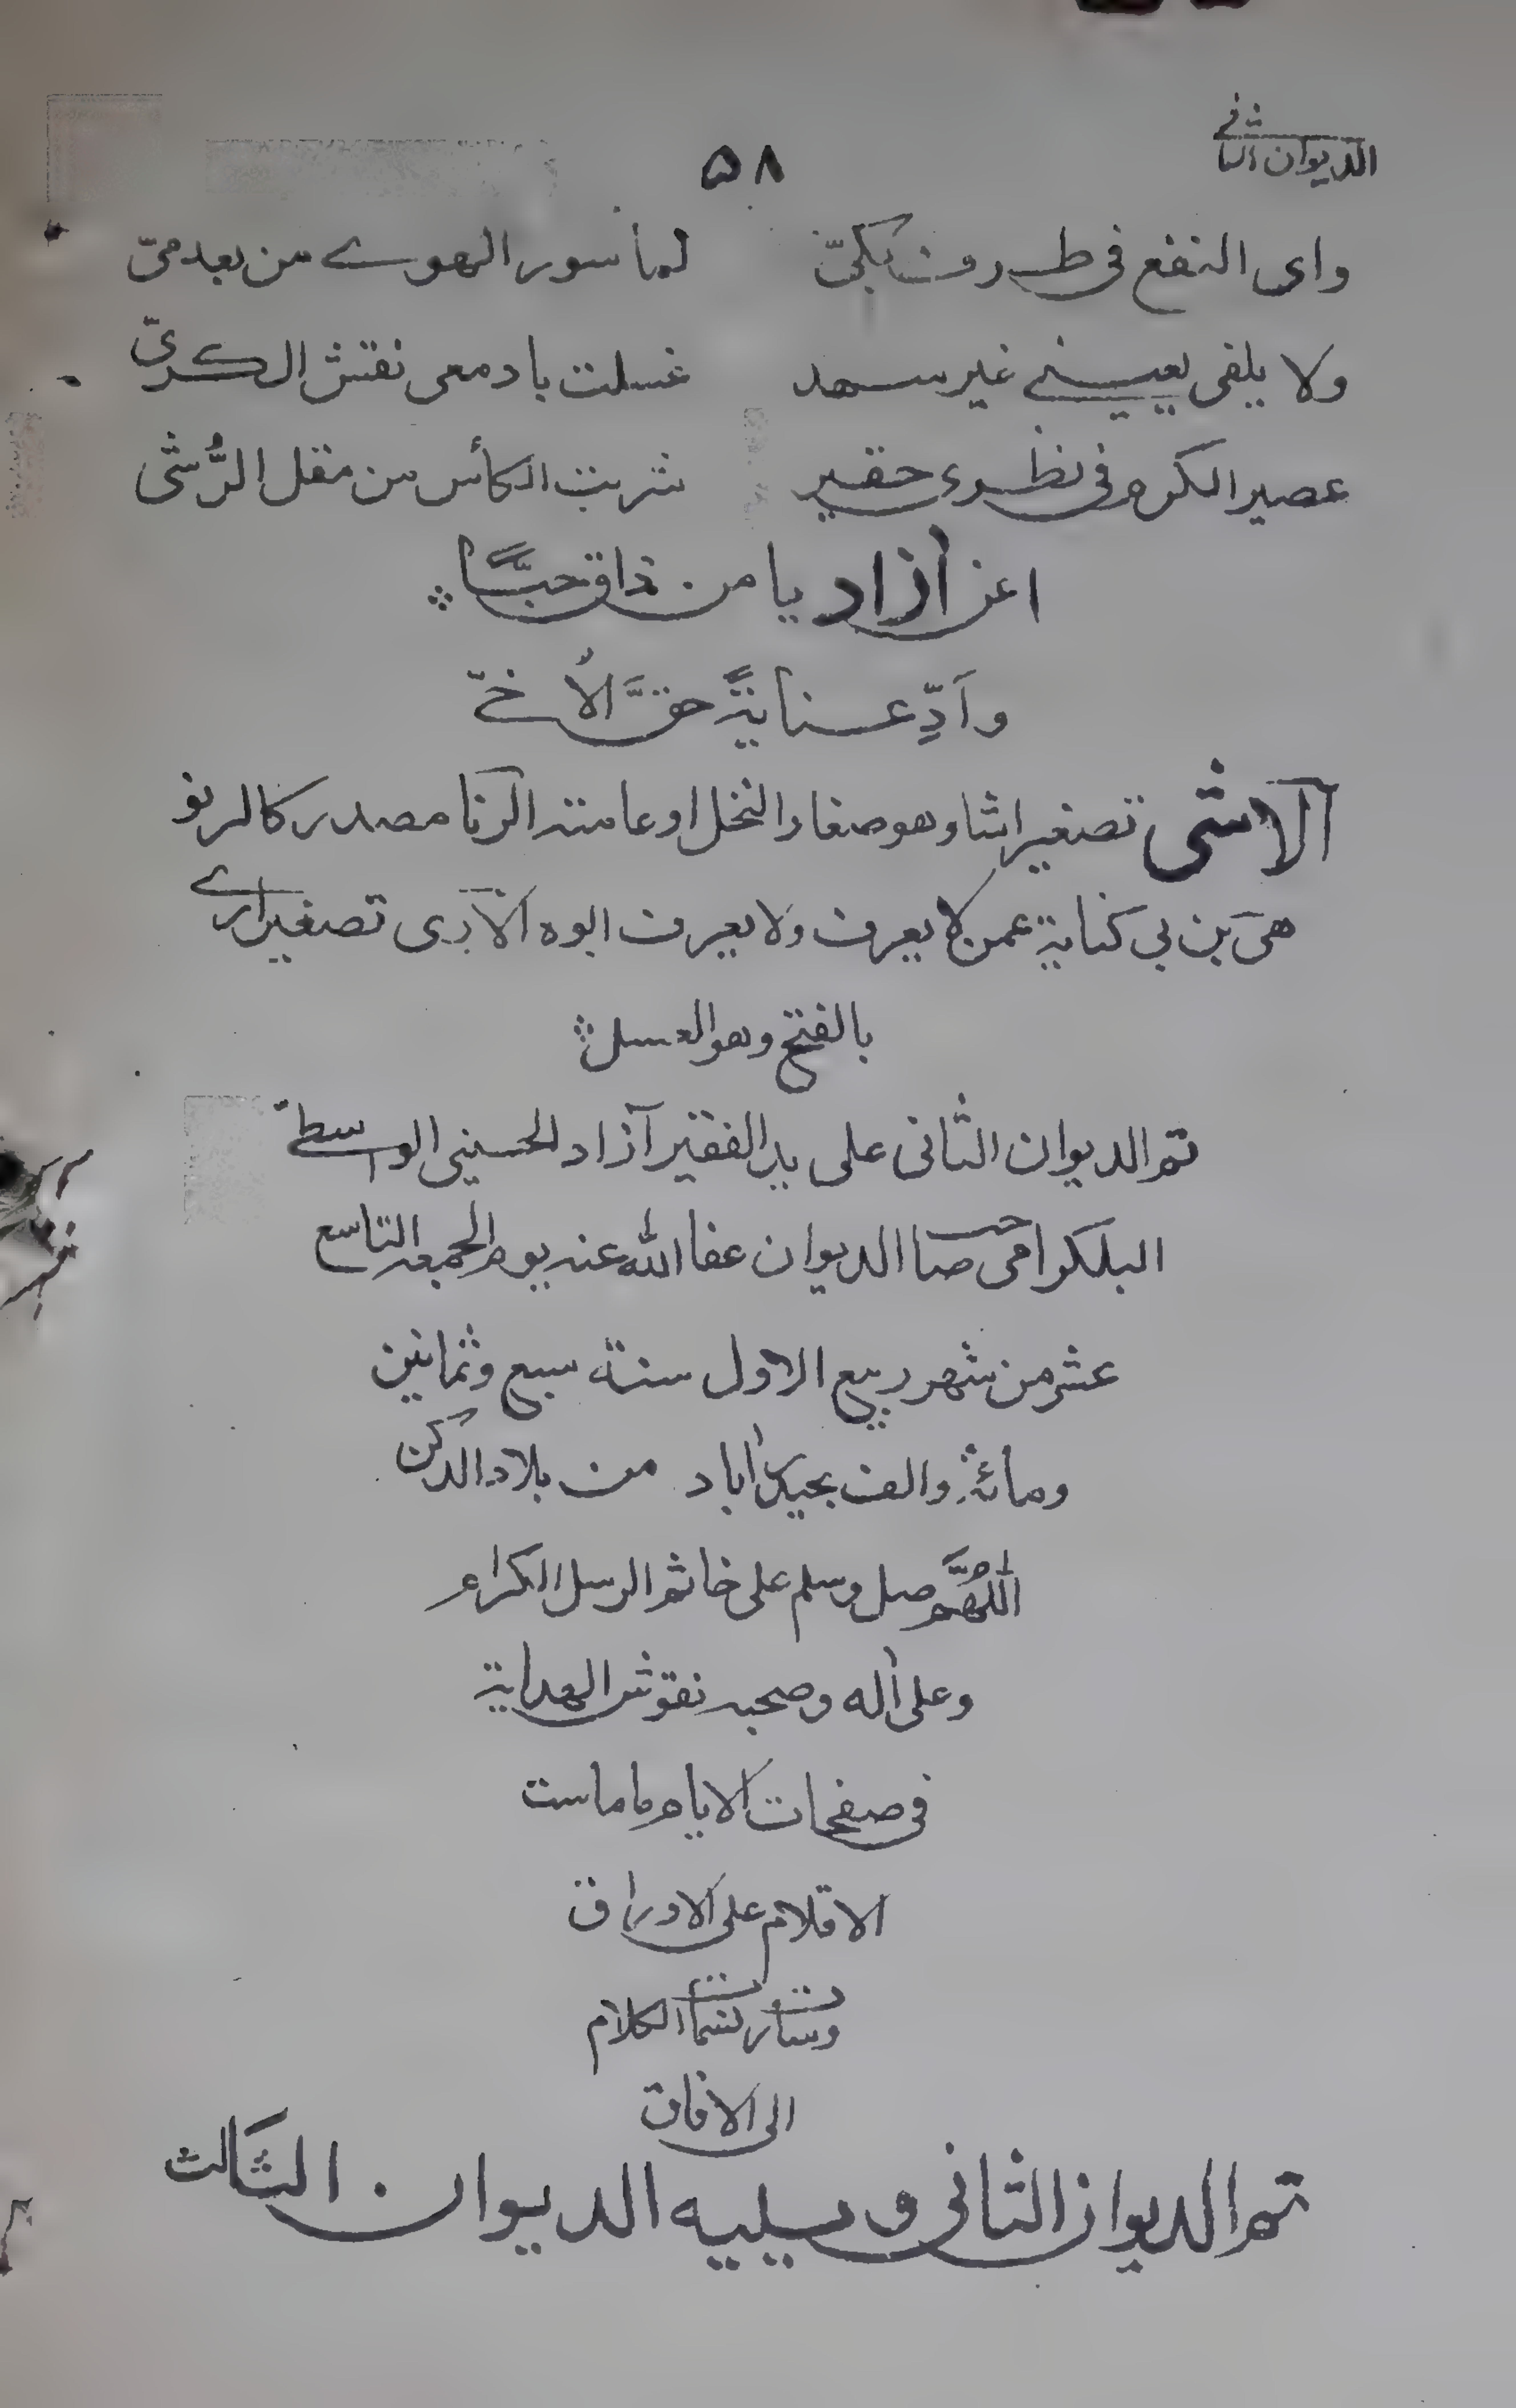 الديوان الثاني
۵۸
واى النفع فى طرف بكىّ لماسور الهوے من بعد مىّ
ولا يلفى بعينے غير سهد غسلت بادمعى نقش الكرىّ
عصير الكرم فى نظرى حقير شربت الكأس من مقل الرُّشى
اعن آزاد يا من ذاق حبًّا
وَاَدِّ عنايةً حقَّ الاُخىّ
آلاشى تصغير اشا وهو صغار النخل او عامته الرنا مصدر كالرنو
هى بن بى كناية عمن لا يعرف ولا يعرف ابوه الارى تصغير ارے
بالفتح وهو العسل
تم الديوان الثانى على يد الفقير آزاد الحسينى الواسطےّ
البلكرامى صاحب الديوان عفا الله عنه يوم الجمعه التاسع
عشر من شهر ربيع الاول سنة سبع وثمانين
ومائة والف بحيدرآباد من بلاد الدكن
اللهُمَّ صل وسلم على خاتم الرسل الكرام
وعلى آله وصحبه نقوش الهداية
فى صفحات الايام ما ماست
الاقلام على الاوراق
وسارت نسمات الكلام
الى الافاق
تم الديوان الثانى ويليه الديوان الثالث